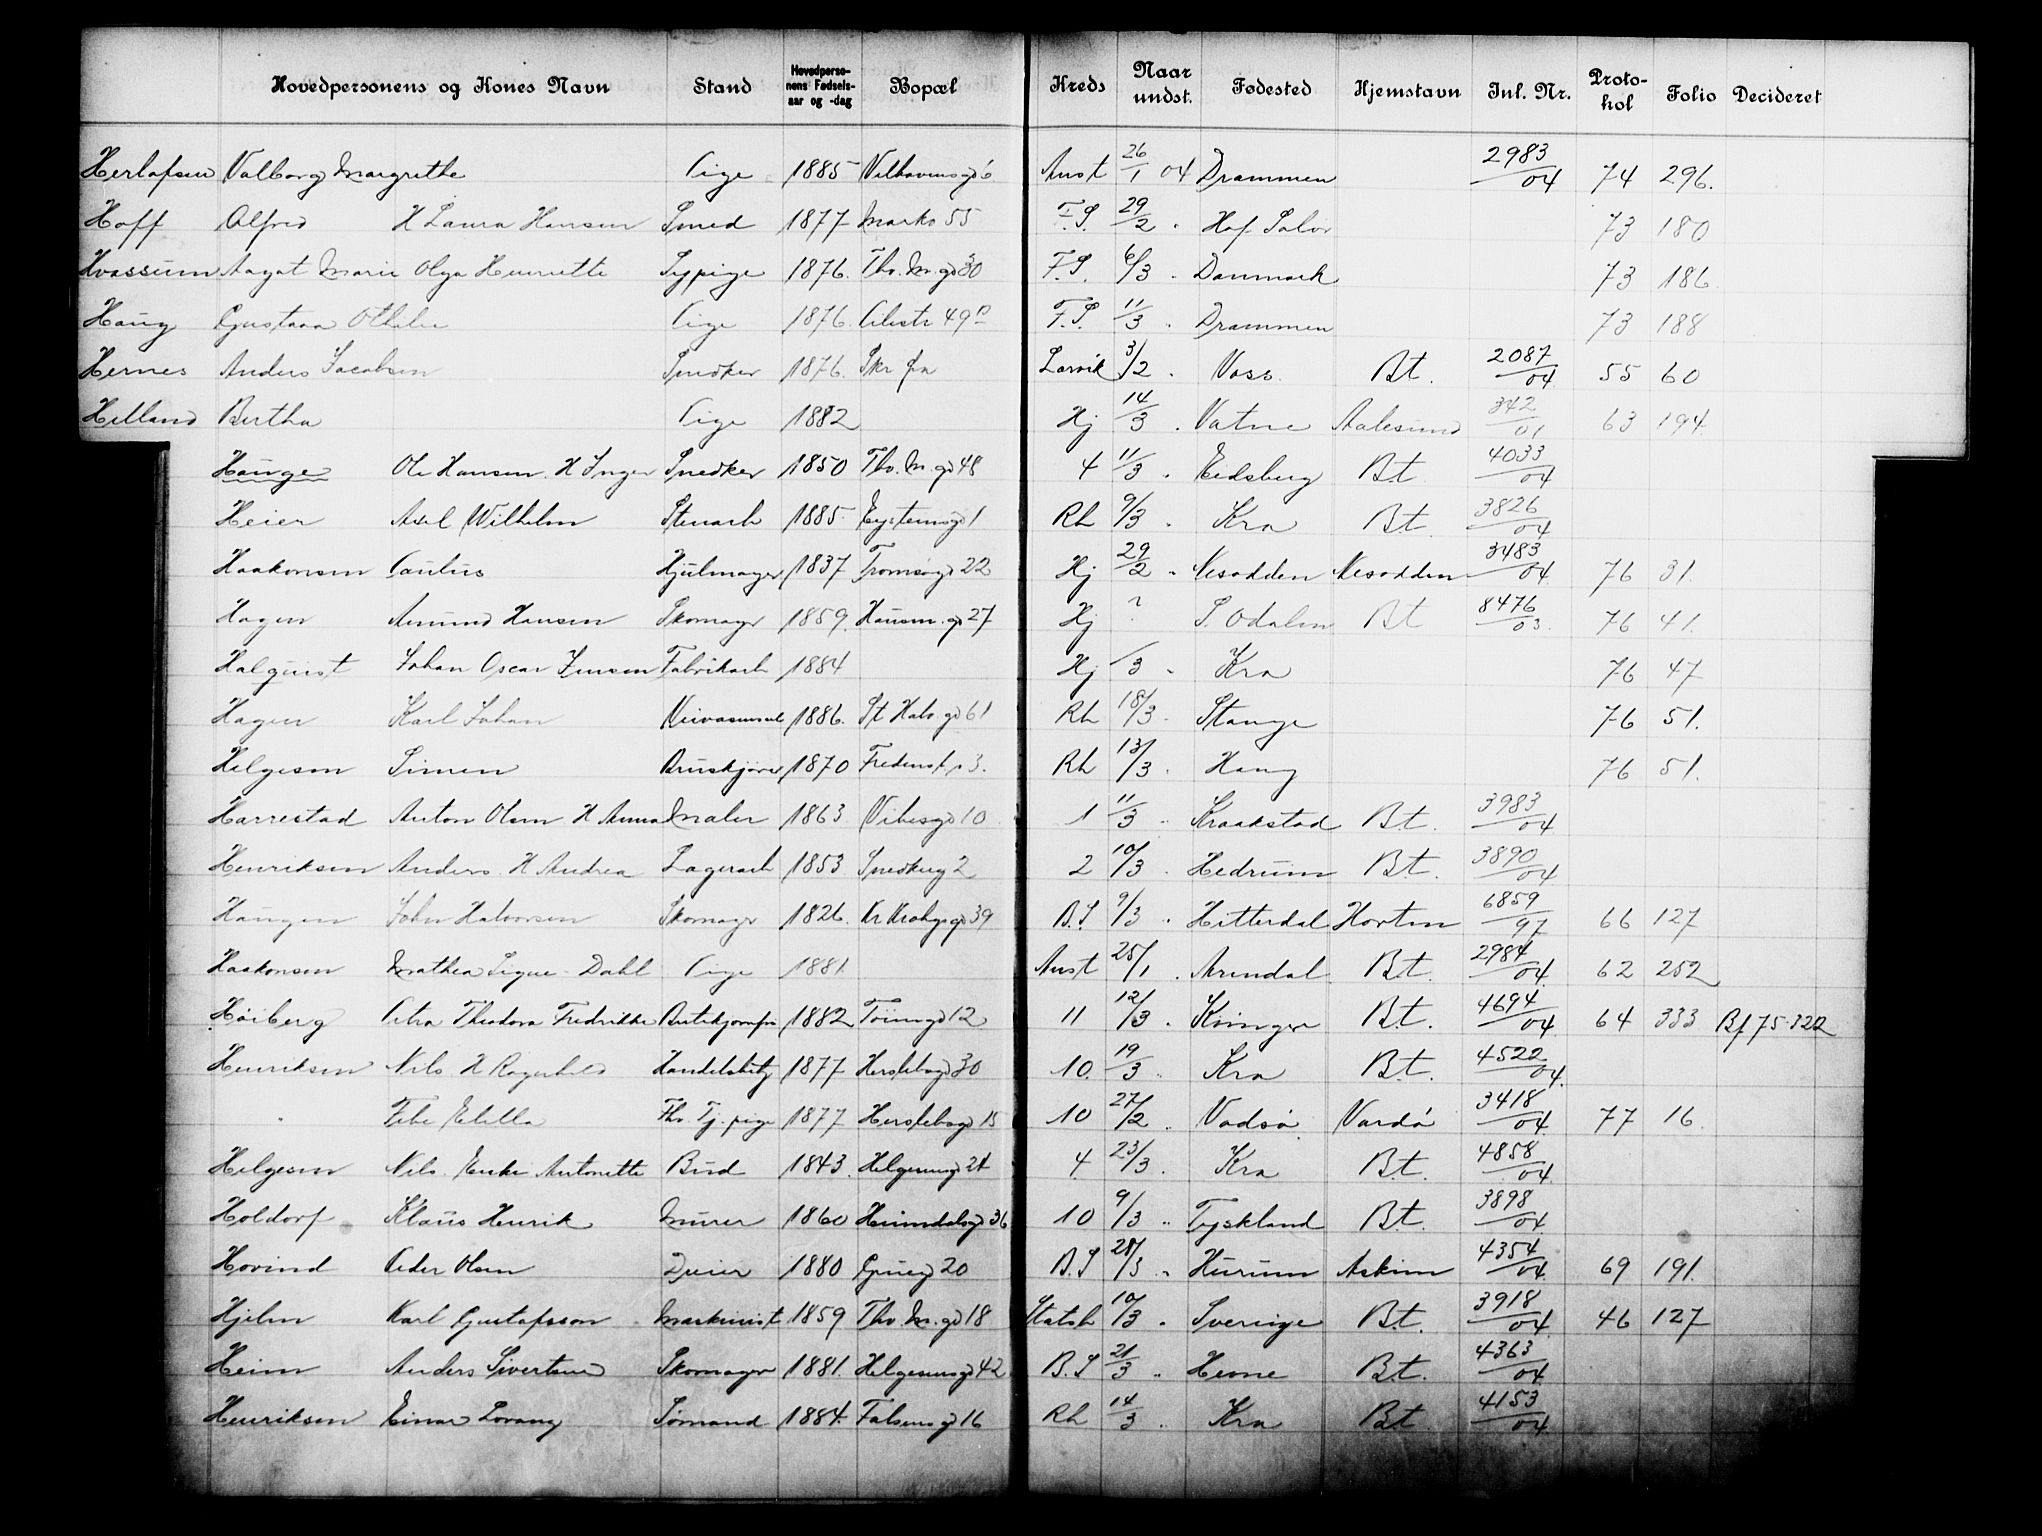 Hovedpersonens og Kones Navn Stand Hovedpersonens Fødselsaar og -dag Bopæl Kreds Naar undst. Fødested Hjemstavn Inl. Nr. Protokol Folio Decideret
Herlofsen Valborg Margrethe Pige 1885 6 Anst 26/1 04 Drammen 2983/04 74 296.
Hoff Alfred H Laura Hansen Smed 1877 Markv 55 F.S. 29/2 " Hof Solør 73 180
Hvassum Aagot Marie Olga Henriette Sypige 1876. Thv. M. gd 30 F.S. 6/3 " Danmark 73 186
Haug Gustava Othilie Pige 1876. 49 F.S. 11/3 " Drammen 73 188
Hernes Anders Jacobsen Snedker 1876. Larvik 3/2 " Voss Bt. 2087/04 55 60
Helland Bertha Pige 1882 Hj 14/3 " Vatne Aalesund 342/01 63 194.
Hauge Ole Hansen. H Inger Snedker 1850 Thv. M. gd 48 4 11/3 " Eidsberg Bt 4033/04
Heier Axel Wilhelm Stenarb 1885 Eysteinsgd 1 Rh 9/3 " Kra Bt. 3826/04
Haakonsen Paulus Hjulmager 1837 Tromsøgd 22 Hj 29/2 " Nesodden Nesodden 3483/04 76 31.
Hagen Amund Hansen Skomager 1859. Hausm. gd 27 Hj ? " S. Odalen Bt 8476/03 76 41.
Halquist Johan Oscar Jensen Fabrikarb 1884 Hj /3 " Kra 76 47
Hagen Karl Johan 1886. St Halv. gd 61 Rh 18/3 " Stange 76 51.
Helgesen Simen Bruskjører 1870 3. Rh 13/3 " Haug 76 51.
Harrestad Anton Olsen H Anna Maler 1863 Vibesgd 10 1 11/3 " Kraakstad Bt. 3983/04
Henriksen Anders. H Andrea Lagerarb 1853 Snedkerg 2 2 10/3 " Hedrum Bt. 3890/04
Haugen John Halvorsen Skomager 1826. Kr Kroghsgd 39 B.S 9/3 " Hitterdal Horten 6859/97 66 127
Haakonsen Mathea Signe Dahl Pige 1881 Anst 25/1 " Arendal Bt. 2984/04 62 252
Høiberg Petra Theodora Fredrikke Butikjomfr 1882 Tøiengd 12 11 12/3 " Bt. 4694/04 64 333 Bf 75.322
Henriksen Nils H Ragnhild Handelsbetj 1877 Herslebsgd 30 10. 19/3 " Kra Bt. 4522/04.
" Elilla Fhv. Tj. pige 1877 Herslebsgd 15 10 27/2 " Vadsø Vardø 3418/04 77 16.
Helgesen Nils. Enke Antonette Bud 1843. Helgesensgd 21 4 23/3 " Kra Bt. 4858/04
Holdorf Klaus Henrik Murer 1860 Heimdalsgd 36 10 9/3 " Tyskland Bt. 3898/04.
Hovind Peder Olsen Dreier 1880 20 B.S 21/3 " Hurum Askim 4354/04 69 191.
Hjelm Karl Gustafsson Maskinist 1859 Thv. M. gd 18 Statsb 10/3 " Sverige Bt. 3918/04 46 127
Heim Anders Sivertsen Skomager 1881. Helgesensgd 42 B.S 21/3 " Hevne Bt. 4363/04
Henriksen Einar Lorang Sømand 1884. Falsensgd 16 Rh 14/3 " Kra Bt. 4153/04